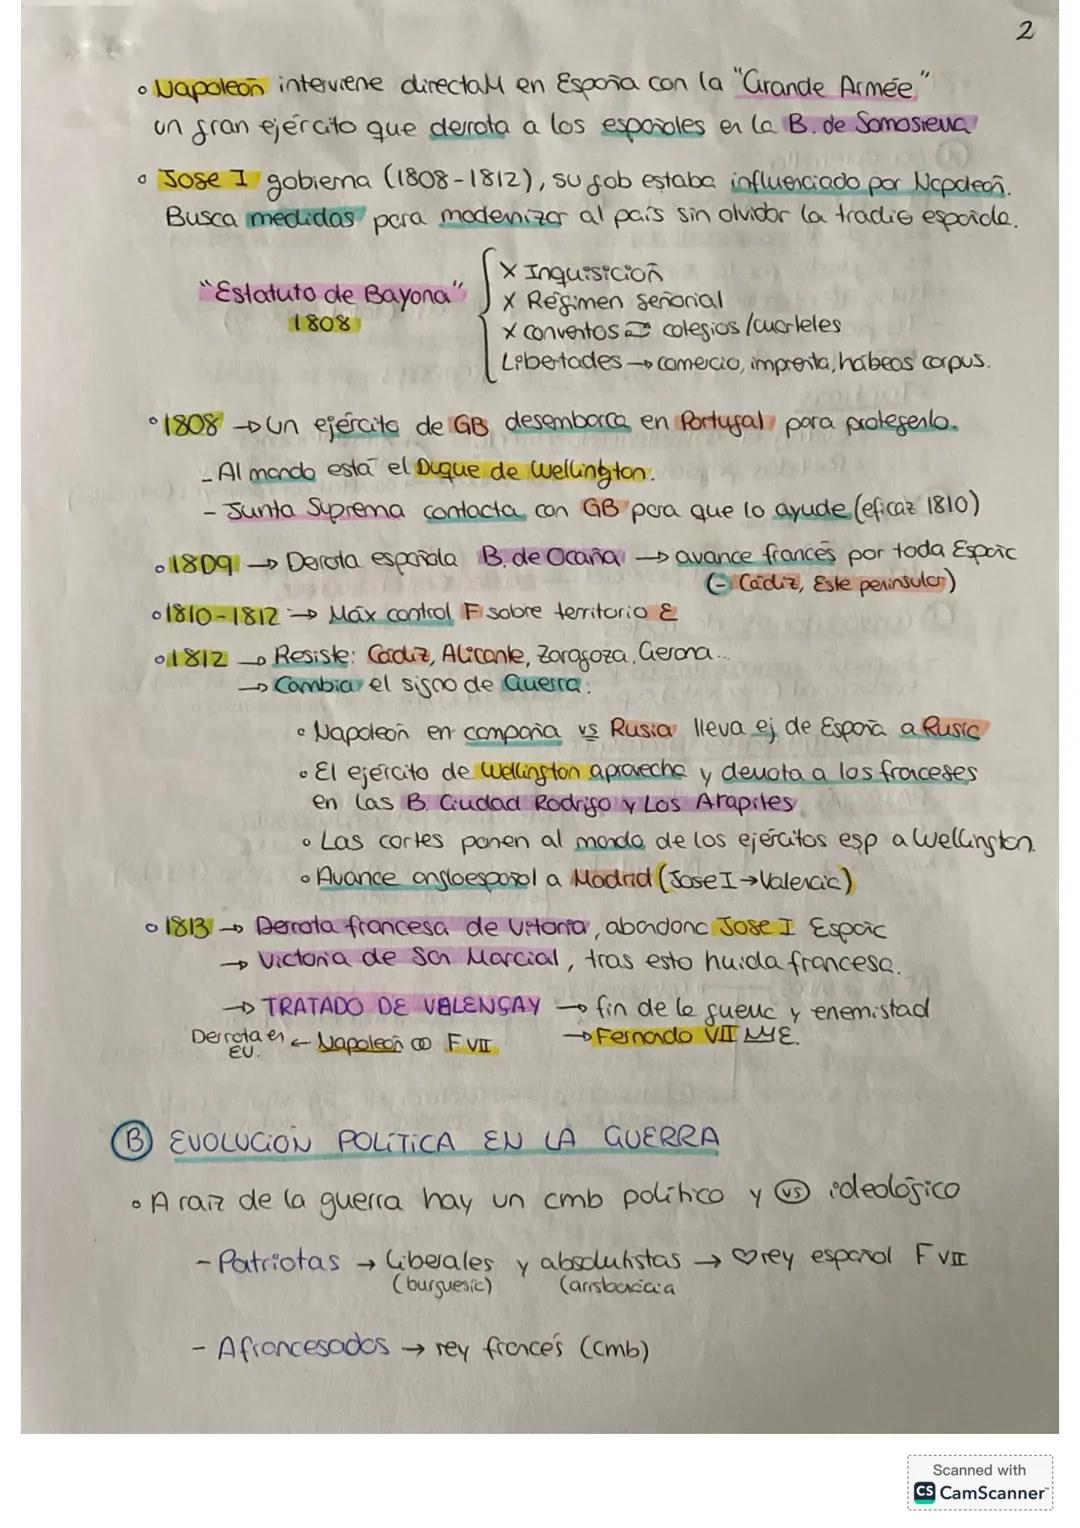 2
• Napoleón interviene directaM en España con la "Grande Armée"
un gran ejército que derrota a los españoles en la B. de Somosierra
• Jose I gobierna (1808-1812), su gob estaba influenciado por Napoleón.
Busca medidas para modernizar al país sin olvidar la tradio española.
"Estatuto de Bayona"
1808
X Inquisición
X Régimen señorial
X conventos ⇄ colegios / cuarteles
Libertades → comercio, imprenta, hábeas corpus.
• 1808 → Un ejército de GB desembarca en Portugal para protegerlo.
- Al mando está el Duque de Wellington.
- Junta Suprema contacta con GB para que lo ayude (eficaz 1810)
• 1809 → Derrota española B. de Ocaña → avance francés por toda España
(- Cádiz, Este peninsular)
• 1810-1812 → Máx control F sobre territorio E
• 1812 → Resiste: Cádiz, Alicante, Zaragoza, Gerona...
→ Cambia el signo de Guerra:
• Napoleón en campaña vs Rusia lleva ej de España a Rusia
• El ejército de Wellington aprovecha y derrota a los franceses
en las B. Ciudad Rodrigo y Los Arapiles
• Las cortes ponen al mando de los ejércitos esp a Wellington.
• Avance angloespañol a Madrid (Jose I → Valencia)
• 1813 → Derrota francesa de Vitoria, abandona Jose I España
→ Victoria de San Marcial, tras esto huida francesa.
→ TRATADO DE VALENÇAY → fin de la guerra y enemistad
Derrota en EU. ← Napoleón ∞ F VII → Fernando VII
(B) EVOLUCIÓN POLÍTICA EN LA GUERRA
• A raíz de la guerra hay un cmb político y (vs) ideológico
- Patriotas → Liberales y absolutistas → ♡ rey español F VII
(burguesía) (aristocracia
- Afrancesados → rey francés (cmb)
Scanned with
CS CamScanner